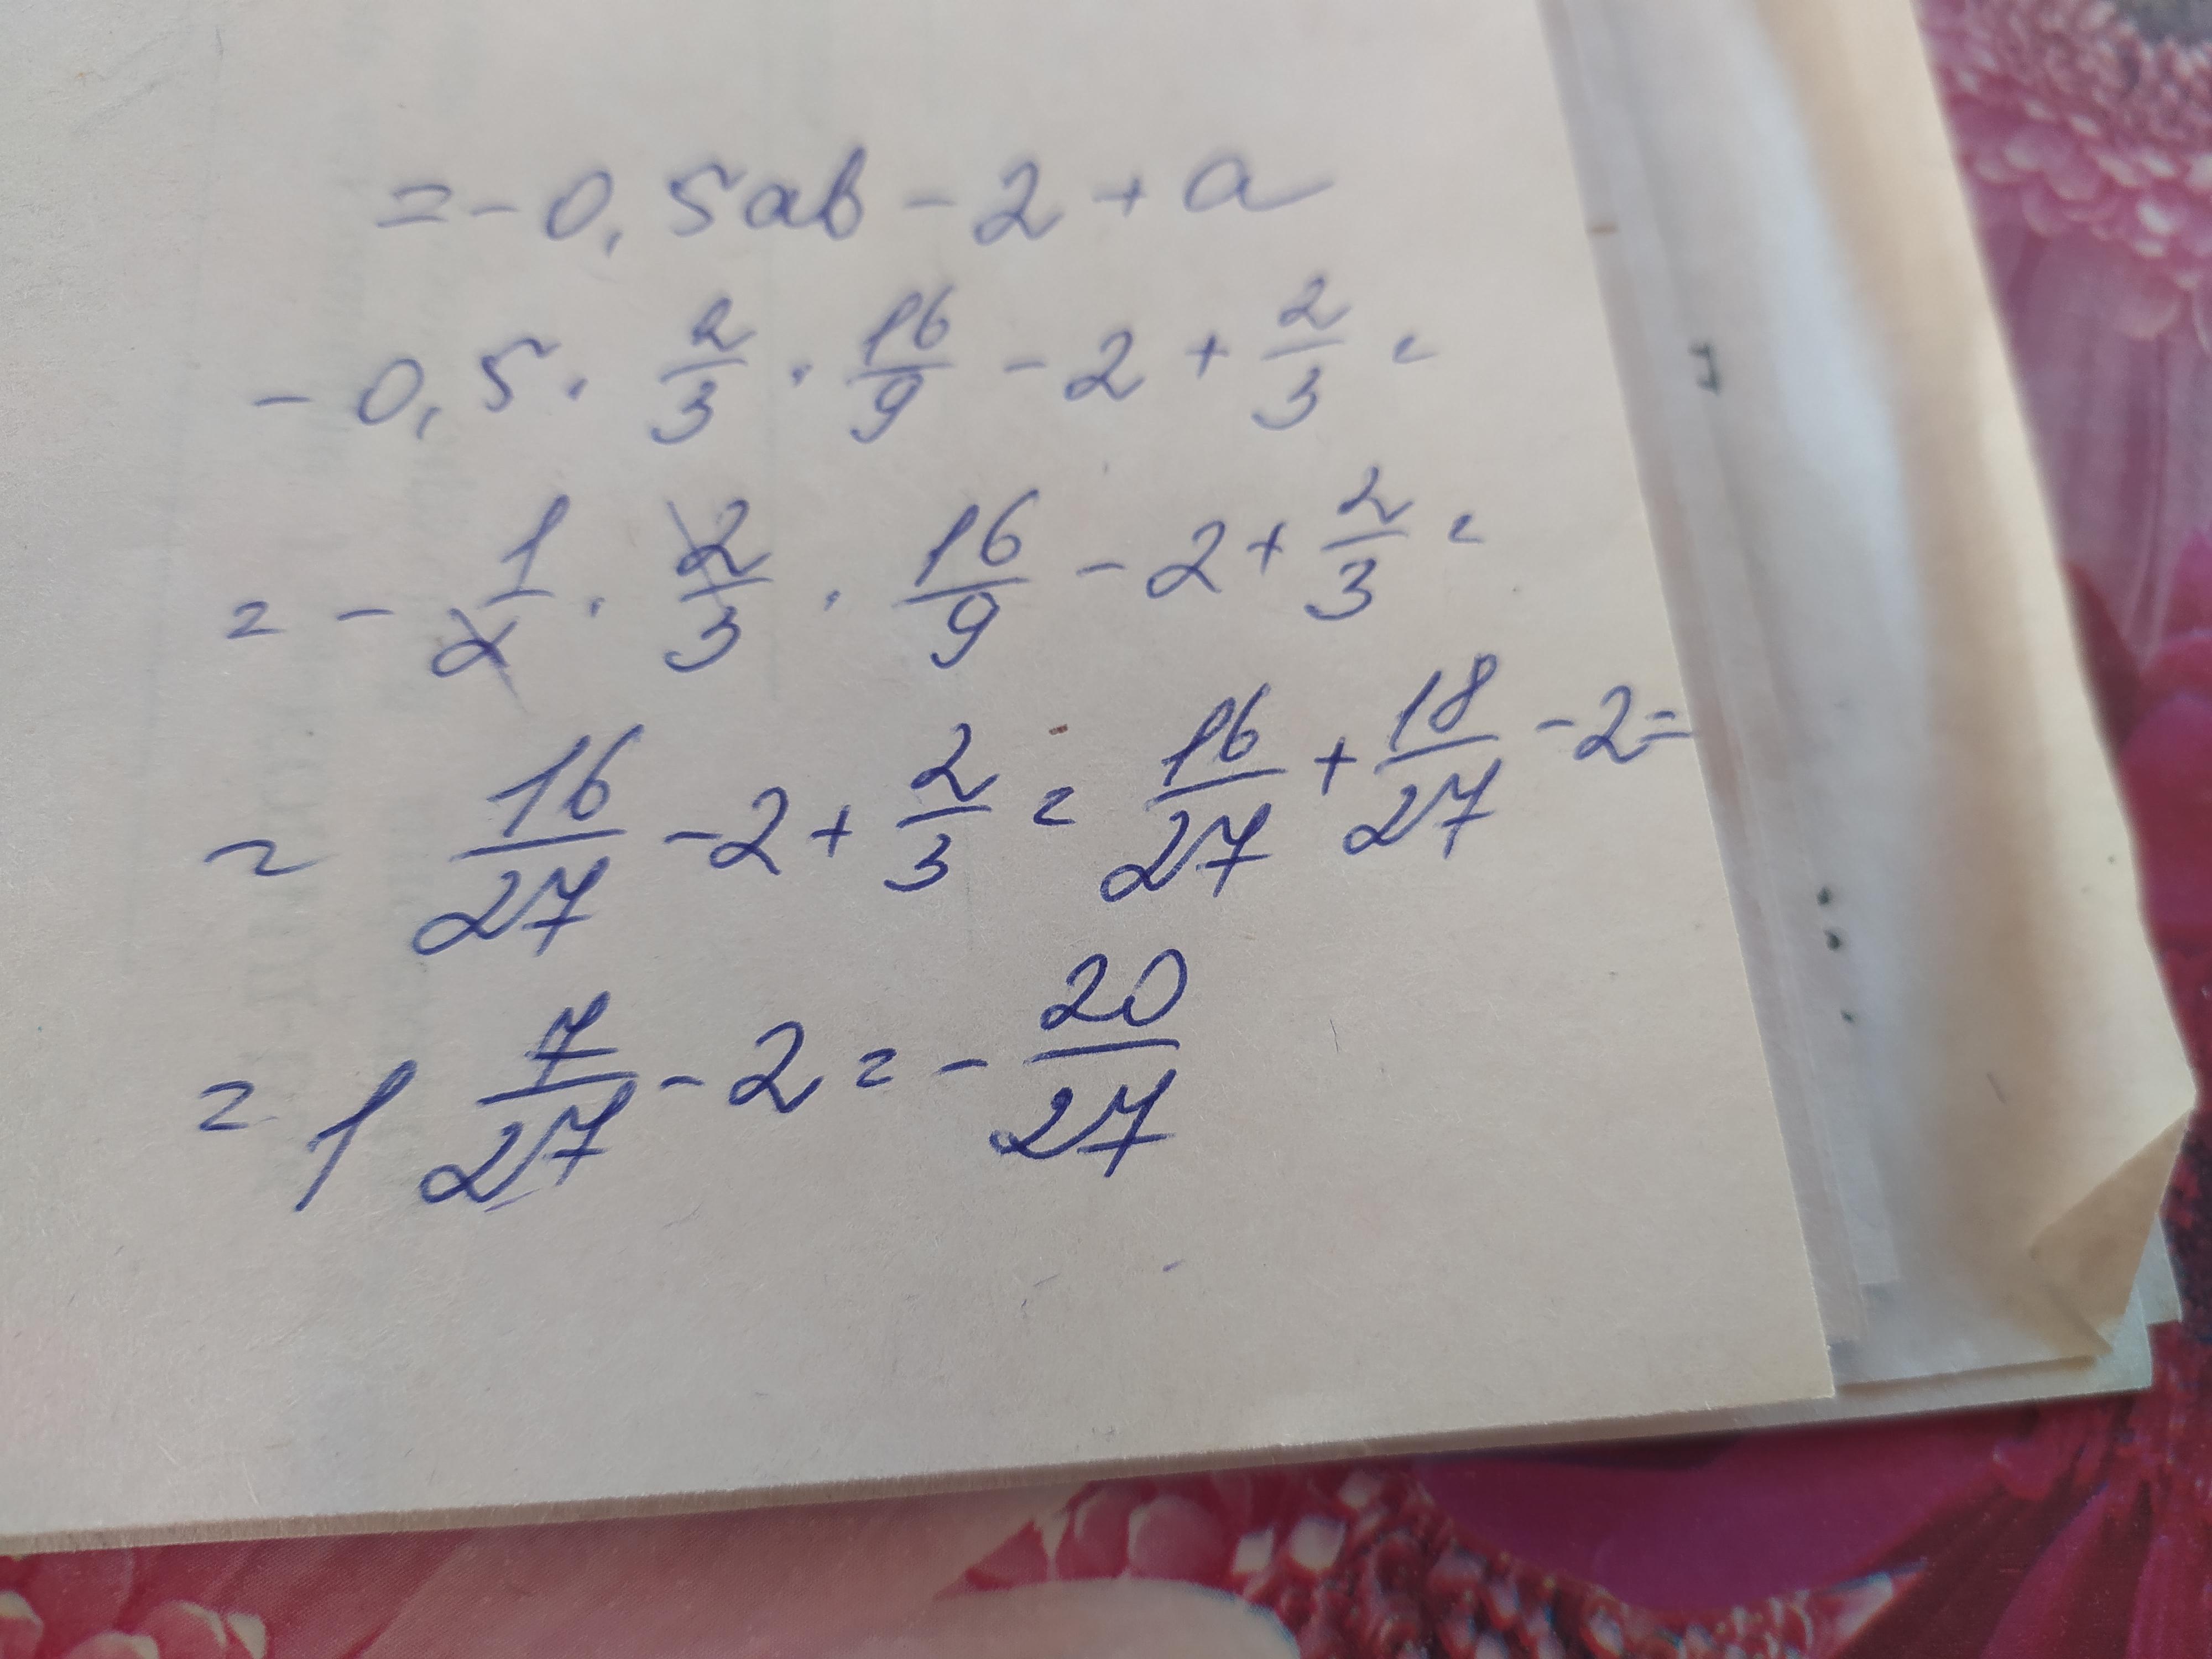 = - 0,5ab - 2 + a
- 0,5 · 2/3 · 16/9 - 2 + 2/3 =
= - 1/2 · 2/3 · 16/9 - 2 + 2/3 =
= 16/27 - 2 + 2/3 = 16/27 + 18/27 - 2 =
= 1 7/27 - 2 = - 20/27